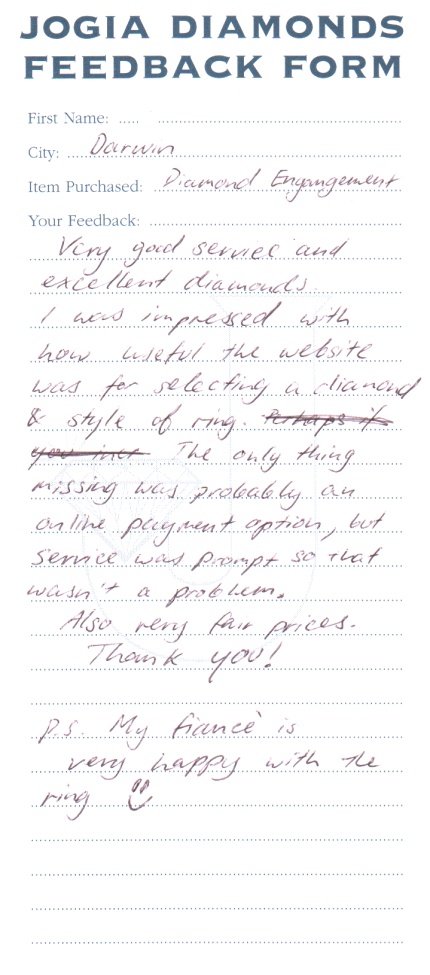 JOGIA DIAMONDS
FEEDBACK FORM
First Name:
City: Darwin
Item Purchased: Diamond Engangement
Your Feedback:
Very good service and
excellent diamonds.
I was impressed with
how useful the website
was for selecting a diamond
& style of ring. Perhaps if
you The only thing
missing was probably an
online payment option, but
service was prompt so that
wasn't a problem.
Also very fair prices.
Thank you!
p.s. My fiancè is
very happy with the
ring